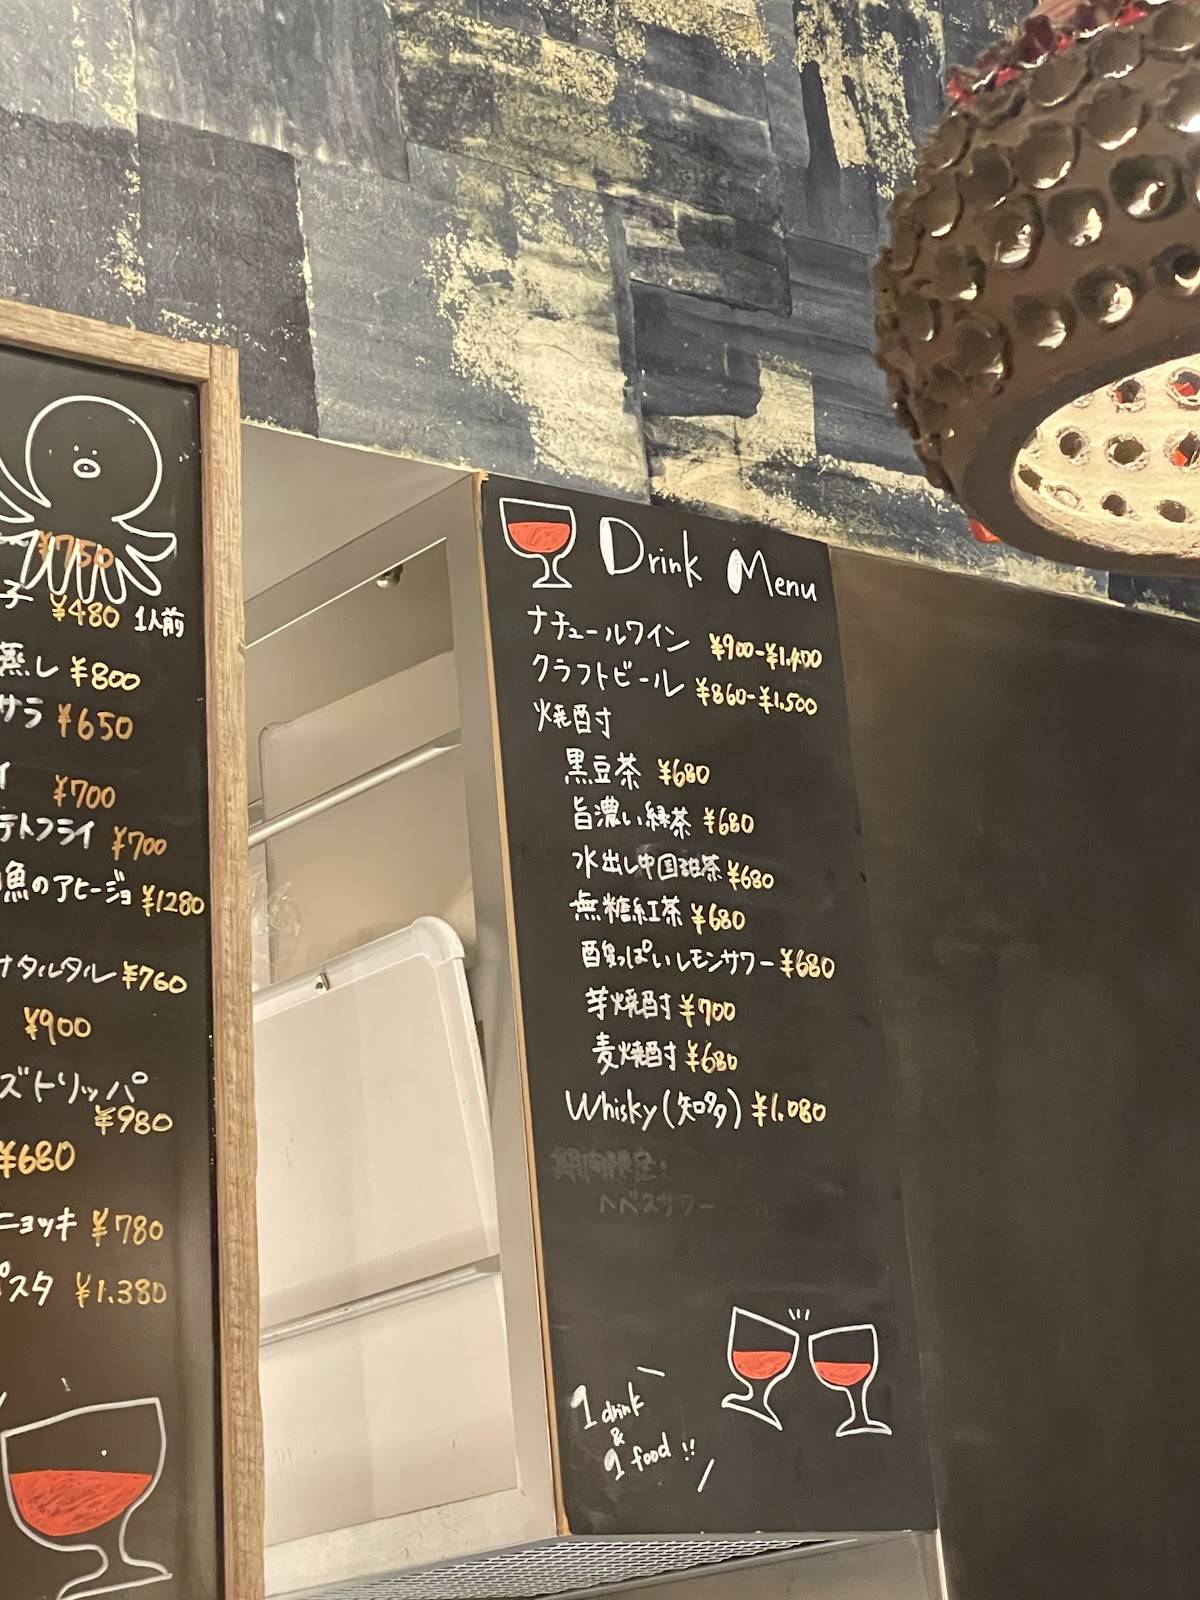 ¥750
子 ¥480 1人前
蒸し ¥800
サラ ¥650
イ ¥700
テトフライ ¥700
魚のアヒージョ ¥1280
タルタル ¥760
¥900
ズトリッパ
¥980
¥680
ニョッキ ¥780
パスタ ¥1.380
Drink Menu
ナチュールワイン ¥900-¥1.400
クラフトビール ¥860-¥1.500
焼酎
黒豆茶 ¥680
旨濃い緑茶 ¥680
水出し中国緑茶 ¥680
無糖紅茶 ¥680
酸っぱいレモンサワー ¥680
芋焼酎 ¥700
麦焼酎 ¥680
Whisky (知多) ¥1.080
期間限定!
ヘベスサワー
1 drink
&
1 food !!